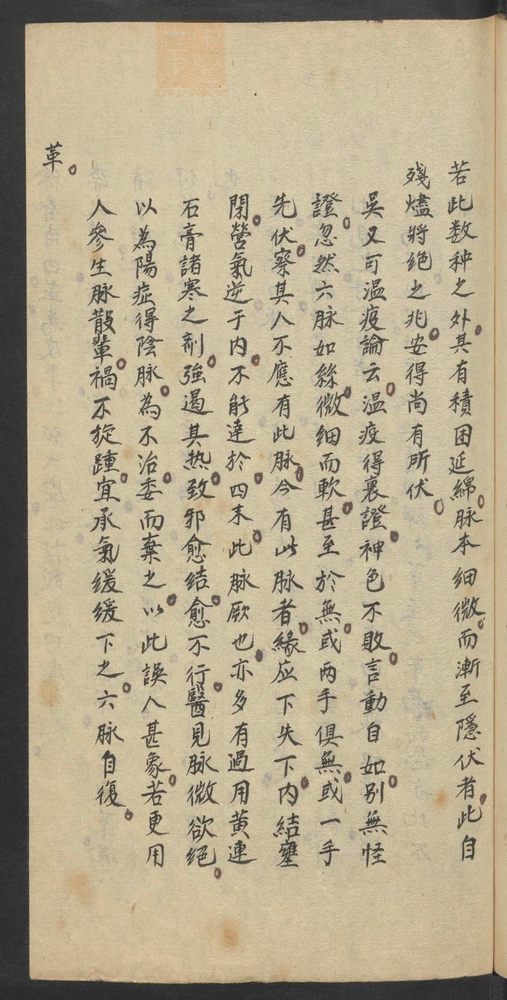 若此数种之外。其有積困延綿。脉本細微。而漸至隱伏者。此自
殘燼將絕之兆。安得尚有所伏。
吳又可溫疫論云。溫疫得裏證。神色不敗。言動自如。別無怪
證。忽然六脉如絲。微細而軟。甚至於無。或两手俱無。或一手
先伏。察其人不應有此脉。今有此脉者。緣应下失下。内結壅
閉。營氣逆于内。不能達於四末。此脉厥也。亦多有過用黄連
石膏諸寒之剤。強遏其热。致邪愈結。愈不行。醫見脉微欲绝。
以為陽症得陰脉。為不治。委而棄之。以此誤人甚象。若更用
人參生脉散輩。禍不旋踵。宜承氣缓缓下之。六脉自復。
革。